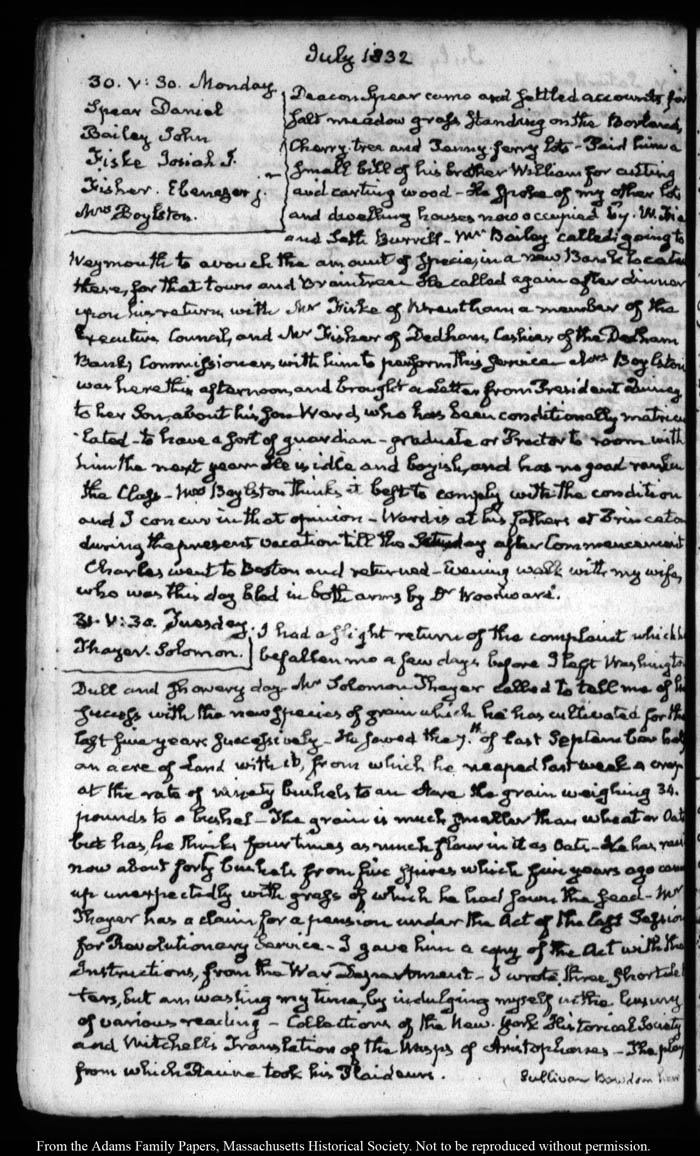 July 1832
30. V: 30. Monday.
Spear Daniel
Bailey John
Fiske Josiah J.
Fisher. Ebenezer
Mrs Boylston.
Deacon Spear came and settled accounts for
salt meadow grass standing on the Borland,
Cherry-tree and Penny-ferry lots - Paid him a
small bill of his brother William for cutting
and carting wood - He spoke of my other lots
and dwelling houses now occupied by W.
and Seth Burrell - Mr Bailey called; going to
Weymouth to avouch the amount of specie, in a new Bank located
there, for that town and Braintree. He called again after dinner
upon his return, with Mr Fiske of Wrentham a member of the
Executive Council, and Mr Fisher of Dedham, Cashier of the Dedham
Bank, Commissioners, with him to perform this service - Mrs Boylston
was here this afternoon, and brought a Letter from President Quincy
to her Son, about his Son Ward, who has been conditionally matricu
lated - to have a sort of guardian - graduate or Proctor to room with
him the next year. He is idle and boyish, and has no good rank in
the Class - Mrs Boylston thinks it best to comply with the condition
and I concur in that opinion - Ward is at his father's at Princeton
during the present vacation till the day after Commencement
Charles went to Boston and returned - Evening walk with my wife,
who was this day bled in both arms by Dr Woodward.
31. V: 30. Tuesday.
Thayer. Solomon.
I had a slight return of the complaint which
befallen me a few days before I left Washington
Dull and Showery day. Mr Solomon Thayer called to tell me of his
success with the new species of grain which he has cultivated for the
last five years successively - He sowed the 7th of last September half
an acre of Land with it, from which he reaped last week a crop
at the rate of ninety bushels to an Acre the grain weighing 34.
pounds to a bushel - The grain is much smaller than wheat or Oats
but has, he thinks four times as much flour in it as Oats - He has
now about forty bushels from five spires which five years ago came
up unexpectedly with grass of which he had sown the seed - Mr
Thayer has a claim for a pension under the Act of the last Session
for Revolutionary Service - I gave him a copy of the Act with the
Instructions, from the War Department - I wrote three short let
ters, but am wasting my time, by indulging myself in the luxury
of various reading - Collections of the New-York Historical Society
and Mitchell's Translation of the Wasps of Aristophanes - The play
from which Racine took his Plaideurs.
Sullivan Bowdoin
From the Adams Family Papers, Massachusetts Historical Society. Not to be reproduced without permission.